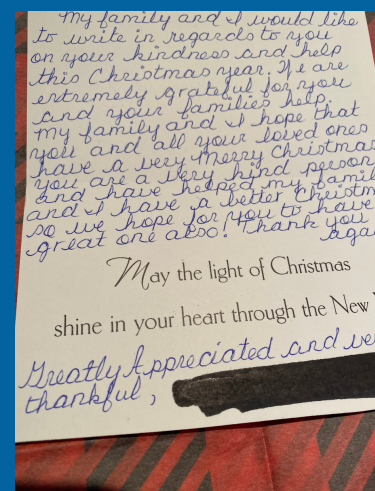 My family and I would like
to write in regards to you
on your kindness and help
this Christmas year. We are
extremely grateful for you
and your families help.
my family and I hope that
you and all your loved ones
have a very Merry Christmas
you are a very kind person
and have helped my famil
and I have a better Christm
so we hope for you to have
great one also! Thank you
aga
May the light of Christmas
shine in your heart through the New
Greatly Appreciated and ve
thankful,